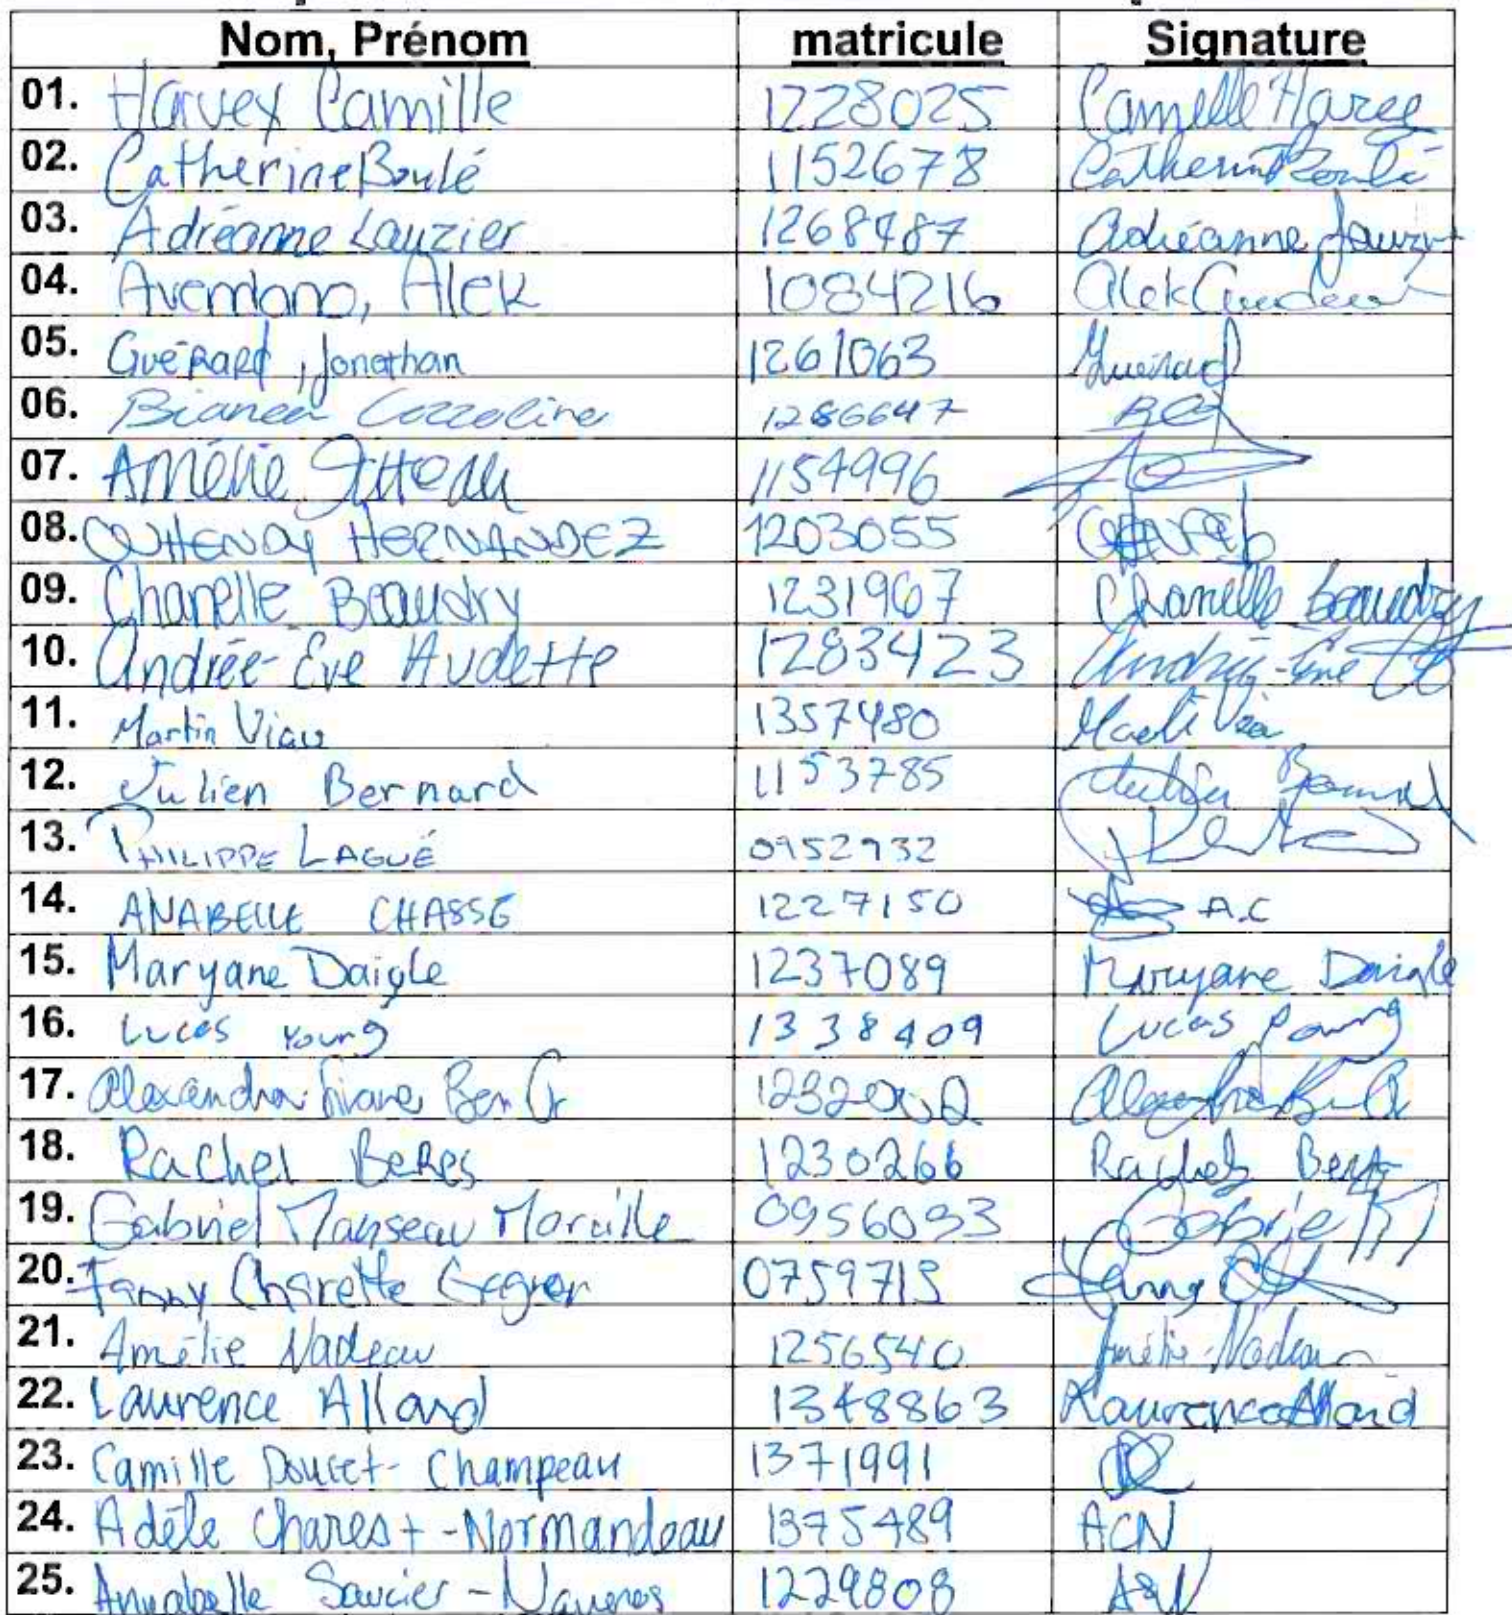 Nom, Prénom matricule Signature
01. Harvey Camille 1228025 Camille Harvey
02. Catherine Boulé 1152678 Catherine Boulé
03. Adréanne Lauzier 1268487 Adréanne Lauzier
04. Avendano, Alek 1084216 Alek
05. Guérard, Jonathan 1261063 Guérard
06. Bianca Cozzolino 1286647
07. Amélie 1154996
08. HERNANDEZ 1203055
09. Chanelle Beaudry 1231967 Chanelle Beaudry
10. Andrée-Eve Audette 1283423 Andrée-Eve
11. Martin Viau 1357480
12. Julien Bernard 1153785 Julien Bernard
13. PHILIPPE LAGUË 0952932
14. ANABELLE CHASSÉ 1227150 A.C
15. Maryane Daigle 1237089 Maryane Daigle
16. Lucas Young 1338409 Lucas Young
17. Alexandra
18. Rachel Beres 1230266 Rachel
19. Gabriel Manseau 0956093
20. Fanny Charette 0759715 Fanny
21. Amélie Nadeau 1256540 Amélie Nadeau
22. Laurence Allard 1348863 Laurence Allard
23. Camille Doucet-Champeau 1371991
24. Adèle Charest-Normandeau 1375489 ACN
25. Annabelle Saucier- 1229808 ASN